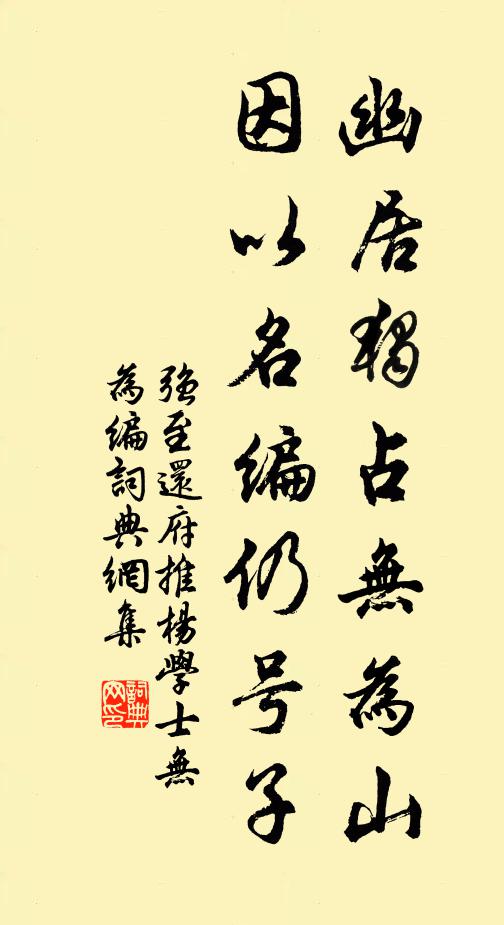 幽居獨占無為山
因以名編仍号子
強至還府推楊學士無
為編詞典網集
詞典網印